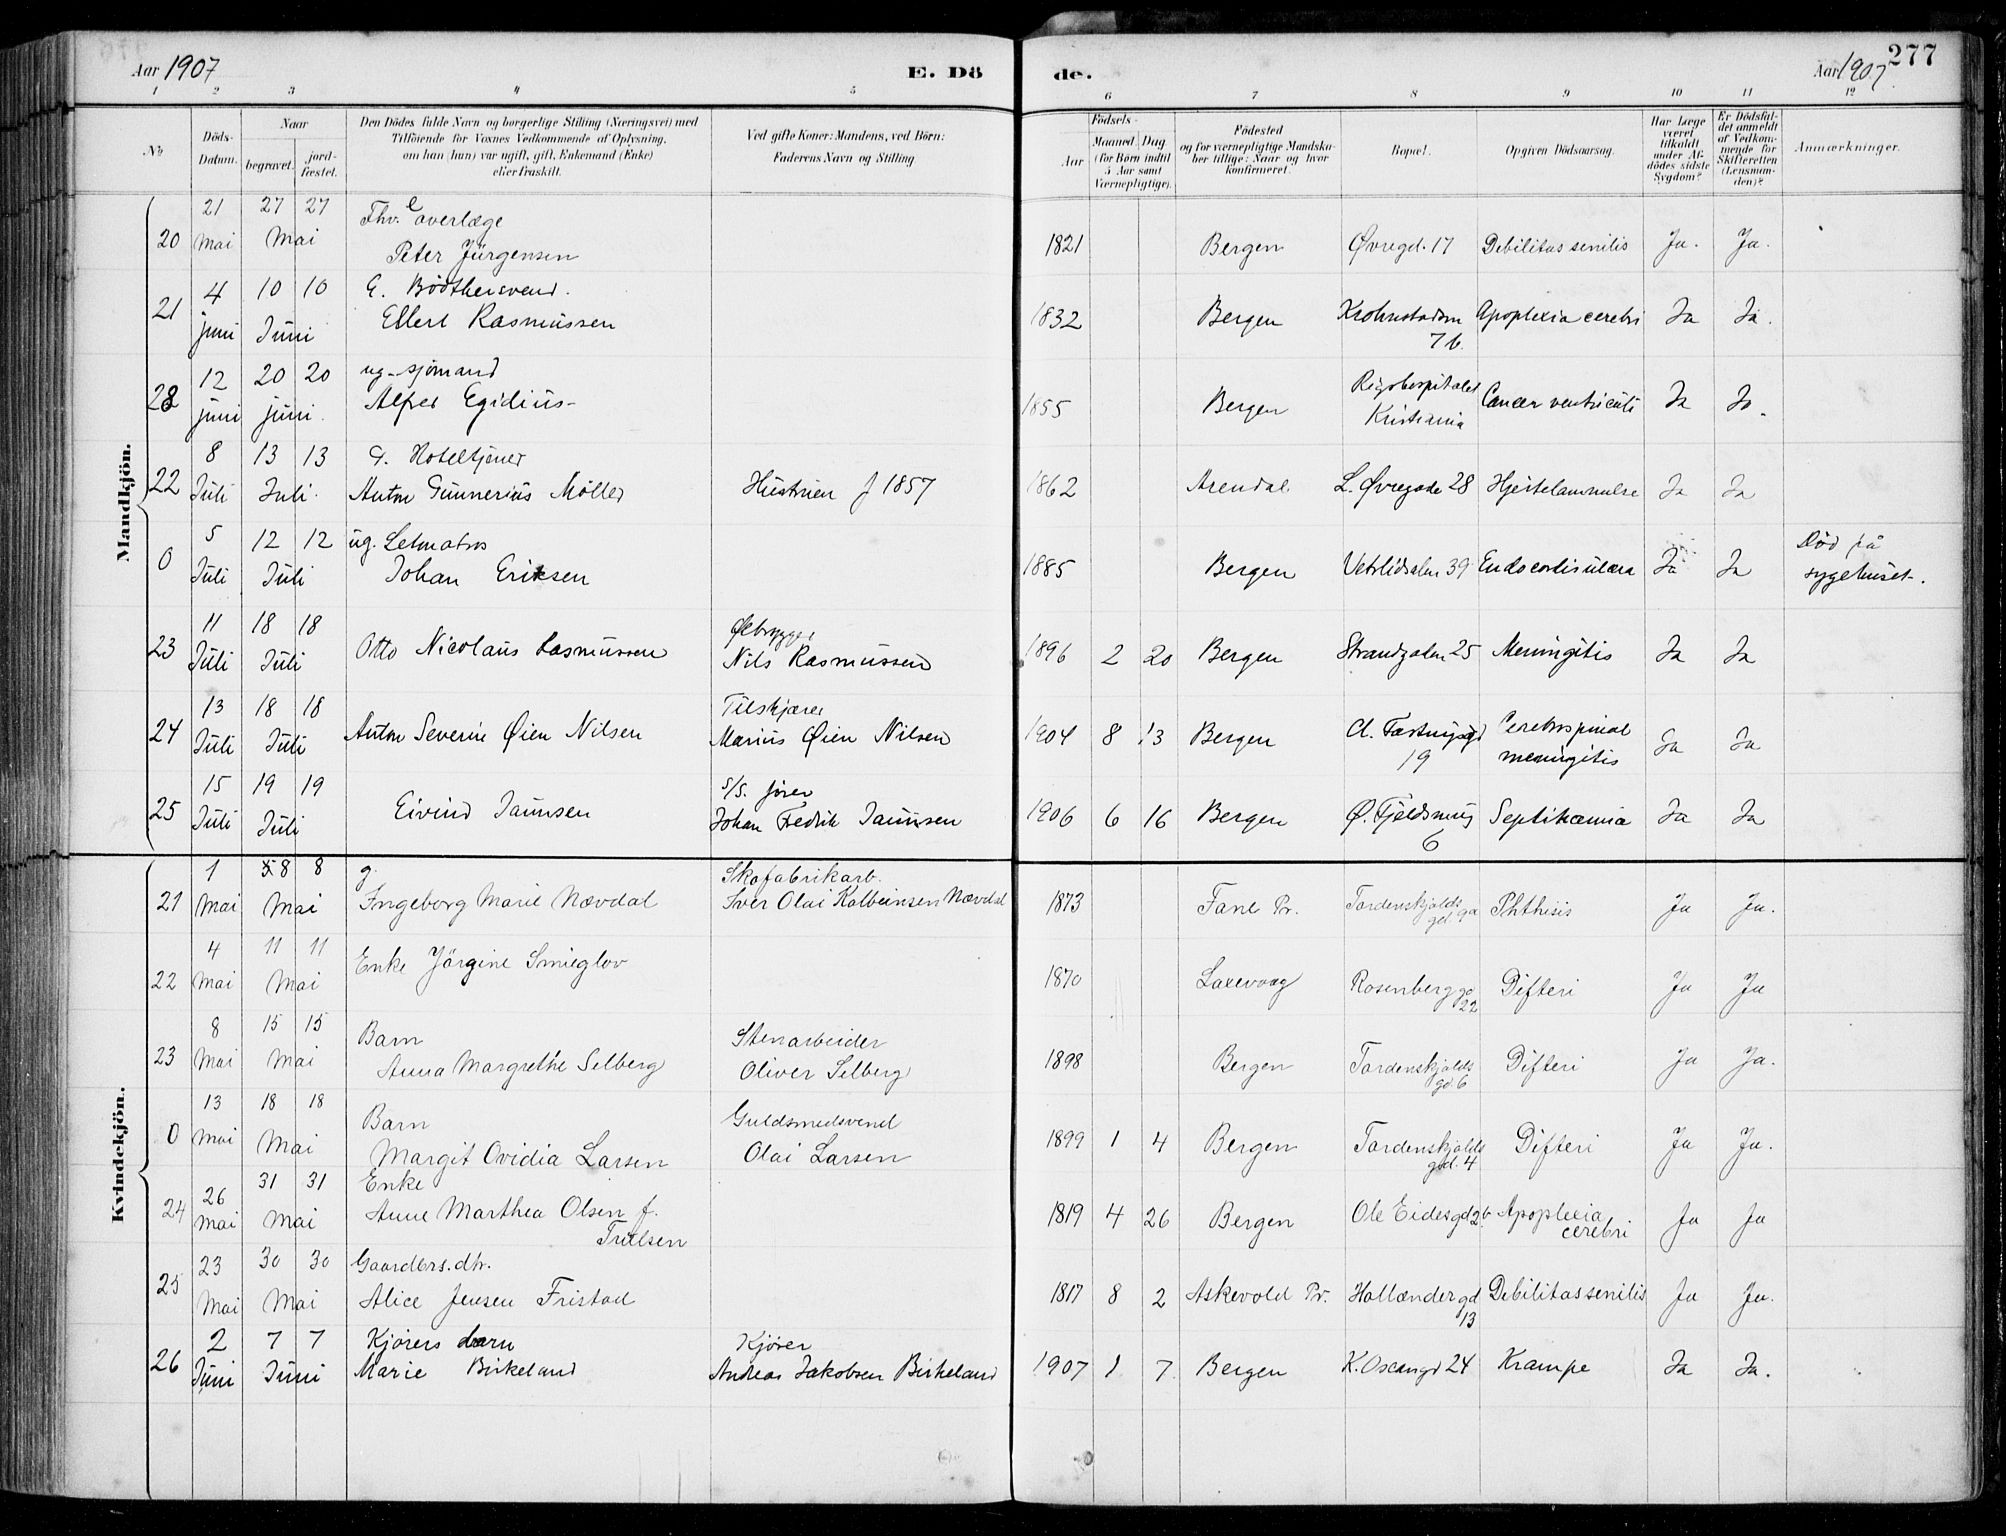 Aar 1907
E. Dö
de.
Aar 1907
277
1 2 3 4 5 6 7 8 9 10 11 12
No
Döds-Datum.
Naar
begravet.
jord-fæstet.
Den Dödes fulde Navn og borgerlige Stilling (Næringsvei) med
Tilföiende for Voxnes Vedkommende af Oplysning,
om han (hun) var ugift, gift, Enkemand (Enke)
eller fraskilt.
Ved gifte Koner: Mandens, ved Börn:
Faderens Navn og Stilling
Födsels-
Aar
Maaned Dag
(for Börn indtil
5 Aar samt
Værnepligtige).
Födested
og for værnepligtige Mandska-
ber tillige: Naar og hvor
konfirmeret.
Bopæl.
Opgiven Dödsaarsag.
Har Læge
været
tilkaldt
under Af-
dödes sidste
Sygdom?
Er Dödsfal-
det anmeldt
af Vedkom-
mende for
Skifteretten
(Lensman-
den)?
Anmærkninger.
Mandkjön.
20 21 Mai 27 27 Mai Fhv. overlæge Peter Jürgensen 1821 Bergen Øvregd. 17 Debilitas senilis Ja. Ja.
21 4 juni 10 10 Juni Bødthersvend. Ellert Rasmussen 1832 Bergen 7b. Apoplexia cerebri Ja Ja.
28 12 juni 20 20 juni. ug. sjømand Alfred Egidius 1855 Bergen Rigshospitalet Kristiania Cancer ventriculi Ja Ja.
22 8 Juli 13 13 Juli. G. Hoteltjener Anton Gunnerius Möller Hustruen f 1857 1862 Arendal. L. Øvregade 28 Hjertelammelse Ja Ja
0 5 Juli 12 12 Juli ug. Letmatros Johan Eriksen 1885 Bergen Vetrlidsalm 39 Ja Ja Død på sygehuset.
23 11 Juli 18 18 Juli Otto Nicolaus Rasmussen Ølbrygger Nils Rasmussen 1896 2 20 Bergen Strandgaten 25 Meningitis Ja Ja
24 13 Juli 18 18 Juli Anton Severin Øien Nilsen Tilskjærer Marius Øien Nilsen 1904 8 13 Bergen 19 Cerebrospinal meningitis Ja Ja
25 15 Juli 19 19 Juli Eivind Jaunsen S/S. fører Johan Fredrik Jaunsen 1906 6 16 Bergen Ø. Fjeldsmug 6 Septikæmia Ja Ja
Kvindekjön.
21 1 Mai 8 8 Mai g. Ingeborg Marie Nævdal Skofabrikarb. Iver Olai Kolbeinsen Nævdal 1873 Fane Pr. Tordenskjolds gd. 9a Phthisis Ja Ja.
22 4 Mai 11 11 Mai Enke Jörgine Smieglov 1870 Laxevaag Rosenberggd 22 Difteri Ja Ja
23 8 Mai 15 15 Mai Barn Anna Margrethe Selberg Stenarbeider Oliver Selberg 1898 Bergen Tordenskjolds gd. 6 Difteri Ja Ja.
0 13 Mai 18 18 Mai Barn Margit Ovidia Larsen Guldsmedsvend Olai Larsen 1899 1 4 Bergen Tordenskjolds gd. 4 Difteri Ja Ja.
24 26 Mai 31 31 Mai Enke Anne Marthea Olsen f. Trulsen 1819 4 26 Bergen Ole Eidesgd 2b. Apoplexia cerebri Ja Ja
25 23 Mai 30 30 Mai Gaardbrs. dtr. Alice Jensen Fristad 1817 8 2 Askevold Pr. Hollændergd 13 Debilitas senilis Ja Ja.
26 2 Juni 7 7 Juni Kjörers barn Marie Birkeland Kjører Andreas Jakobsen Birkeland 1907 1 7 Bergen K. Oscarsgd 24 Krampe Ja Ja.